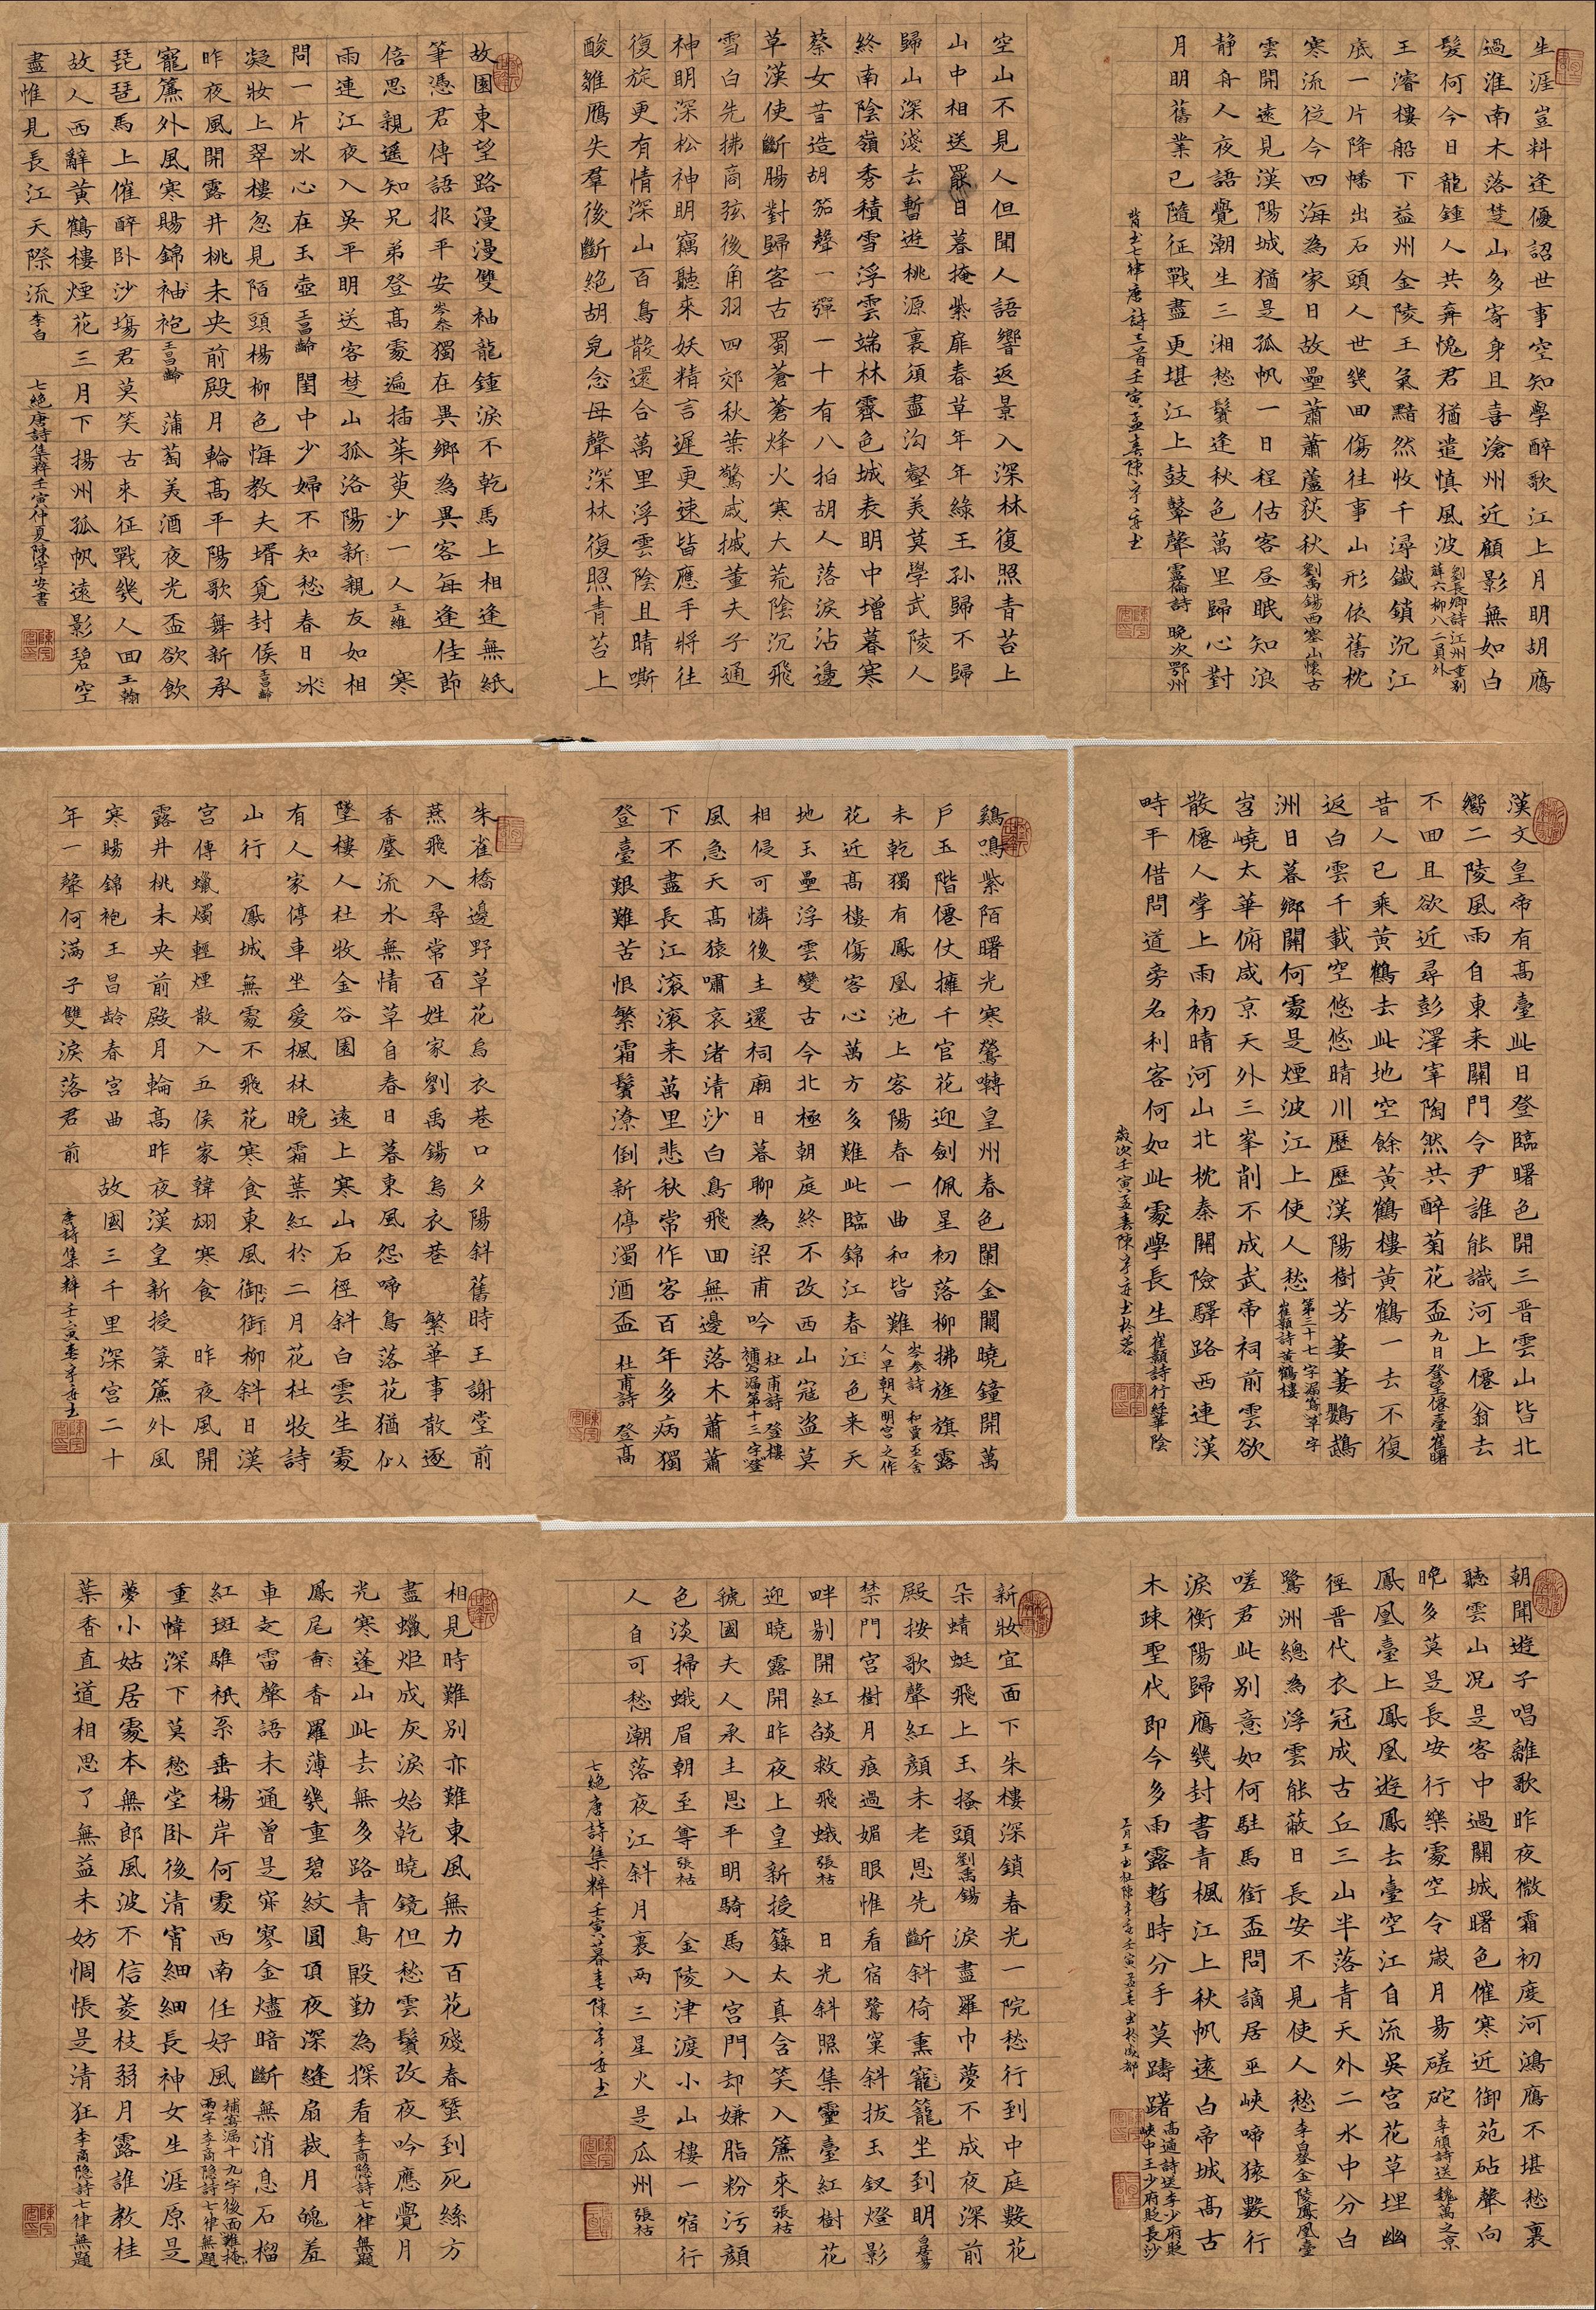 生涯豈料逢優詔世事空知學醉歌江上月明胡鴈
過淮南木落楚山多寄身且喜滄州近顧影無如白
髮何今日龍鍾人共弃愧君猶遣慎風波 劉長卿詩江州重別薛六柳八二員外
王濬樓船下益州金陵王氣黯然收千尋鐵鎖沉江
底一片降幡出石頭人世幾回傷往事山形依舊枕
寒流從今四海為家日故壘蕭蕭蘆荻秋 劉禹錫西塞山懷古
雲開遠見漢陽城猶是孤帆一日程估客昼眠知浪
静舟人夜語覺潮生三湘愁鬢逢秋色萬里歸心對
月明舊業已隨征戰盡更堪江上鼓鼙聲 詩 晚次鄂州
背書七律唐詩三首壬寅孟春陳宇安書
空山不見人但聞人語響返景入深林復照青苔上
山中相送罷日暮掩紫扉春草年年綠王孫歸不歸
歸山深淺去暫遊桃源裏須盡沟壑美莫學武陵人
終南陰嶺秀積雪浮雲端林霽色城表明中增暮寒
蔡女昔造胡笳聲一彈一十有八拍胡人落淚沾邊
草漢使斷腸對歸客古蜀蒼蒼烽火寒大荒陰沉飛
雪白先拂商弦後角羽四郊秋葉驚戚摵董夫子通
神明深松神明竊聽來妖精言遲更速皆應手將往
復旋更有情深山百鳥散還合萬里浮雲陰且晴嘶
酸雛鴈失羣後斷絕胡皃念母聲深林復照青苔上
故園東望路漫漫雙袖龍鍾淚不乾馬上相逢無紙
筆憑君傳語报平安 岑參 獨在異鄉為異客每逢佳節
倍思親遥知兄弟登高處遍插茱萸少一人 王維 寒
雨連江夜入吳平明送客楚山孤洛陽新親友如相
問一片冰心在玉壺 王昌齡 閨中少婦不知愁春日
凝妝上翠樓忽見陌頭楊柳色悔教夫壻覓封侯 王昌齡
昨夜風開露井桃未央前殿月輪高平陽歌舞新承
寵簾外風寒賜錦袖袍 王昌齡 蒲萄美酒夜光盃欲飲
琵琶馬上催醉卧沙場君莫笑古来征戰幾人回 王翰
故人西辭黄鶴樓煙花三月下揚州孤帆遠影碧空
盡惟見長江天際流 李白
七绝唐詩集粹壬寅仲夏陳宇安書
漢文皇帝有高臺此日登臨曙色開三晋雲山皆北
嚮二陵風雨自東来關門令尹誰能識河上僊翁去
不回且欲近尋彭澤宰陶然共醉菊花盃 九日登望僊臺崔曙
昔人已乘黄鶴去此地空餘黄鶴樓黄鶴一去不復
返白雲千載空悠悠晴川歷歷漢陽樹芳萋萋鸚鵡
洲日暮鄉關何處是煙波江上使人愁 第三十七字漏寫草字 崔顥詩黄鶴樓
岧嶢太華俯咸京天外三峯削不成武帝祠前雲欲
散僊人掌上雨初晴河山北枕秦關險驛路西連漢
時平借問道旁名利客何如此處學長生 崔顥詩行經華陰
歲次壬寅孟春陳宇安书於蓉
鷄鳴紫陌曙光寒鶯囀皇州春色闌金闕曉鐘開萬
戶玉階僊仗擁千官花迎劍佩星初落柳拂旌旗露
未乾獨有鳳凰池上客陽春一曲和皆難 岑參詩 和賈至舍人早朝大明宮之作
花近高樓傷客心萬方多難此臨錦江春江色来天
地玉壘浮雲變古今北極朝庭終不改西山寇盗莫
相侵可憐後主還祠廟日暮聊為梁甫吟 杜甫詩 登樓 補寫漏第十三字登
風急天高猿嘯哀渚清沙白鳥飛回無邊落木蕭蕭
下不盡長江滚滚来萬里悲秋常作客百年多病獨
登臺艱難苦恨繁霜鬢潦倒新停濁酒盃 杜甫詩 登高
朱雀橋邊野草花烏衣巷口夕陽斜舊時王謝堂前
燕飛入尋常百姓家劉禹錫烏衣巷 繁華事散逐
香塵流水無情草自春日暮東風怨啼鳥落花猶似
墜樓人杜牧金谷園 遠上寒山石徑斜白雲生處
有人家停車坐爱楓林晚霜葉紅於二月花杜牧詩
山行 鳳城無處不飛花寒食東風御街柳斜日漢
宮傳蠟燭輕煙散入五侯家韓翃寒食 昨夜風開
露井桃未央前殿月輪高昨夜漢皇新授箓簾外風
寒賜錦袍王昌龄春宮曲 故國三千里深宮二十
年一聲何滿子雙淚落君前
唐詩集粹壬寅春宇安书
朝聞遊子唱離歌昨夜微霜初度河鴻鴈不堪愁裏
聽雲山况是客中過關城曙色催寒近御苑砧聲向
晚多莫是長安行樂處空令歲月昜磋砣 李頎詩送魏萬之京
鳳凰臺上鳳凰遊鳳去臺空江自流吳宮花草埋幽
徑晋代衣冠成古丘三山半落青天外二水中分白
鷺洲總為浮雲能蔽日長安不見使人愁 李白登金陵鳳凰臺
嗟君此别意如何駐馬銜盃問謫居巫峽啼猿數行
淚衡陽歸鴈幾封書青楓江上秋帆遠白帝城高古
木疎聖代即今多雨露暫時分手莫躊躇 高適詩送李少府貶峽中王少府貶長沙
新妝宜面下朱樓深鎖春光一院愁行到中庭數花
朵蜻蜓飛上玉搔頭 劉禹錫 淚盡羅巾夢不成夜深前
殿按歌聲紅顏未老恩先斷斜倚熏寵籠坐到明
禁門宮樹月痕過媚眼惟看宿鷺窠斜拔玉釵燈影
畔剔開紅燄救飛蛾 張祜 日光斜照集靈臺紅樹花
迎曉露開昨夜上皇新授籙太真含笑入簾來 張祜
虢國夫人承主恩平明騎馬入宮門却嫌脂粉污顏
色淡掃蛾眉朝至尊 張祜 金陵津渡小山樓一宿行
人自可愁潮落夜江斜月裏两三星火是瓜州 張祜
七绝唐詩集粹壬寅暮春陳宇安书
相見時難别亦難東風無力百花殘春蠶到死絲方
盡蠟炬成灰淚始乾曉鏡但愁雲鬢改夜吟應覺月
光寒蓬山此去無多路青鳥殷勤為探看 李商隐詩七律無題
鳳尾香羅薄幾重碧紋圓頂夜深縫扇裁月魄羞
車走雷聲語未通曾是寂寥金燼暗斷無消息石榴
紅斑騅衹系垂楊岸何處西南任好風 補寫漏十九字後面難掩两字李商隐詩七律無題
重幃深下莫愁堂卧後清宵細細長神女生涯原是
夢小姑居處本無郎風波不信菱枝弱月露誰教桂
葉香直道相思了無益未妨惆悵是清狂 李商隐詩七律無題